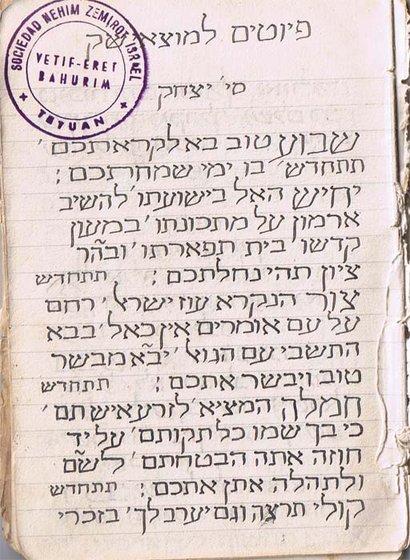 SOCIEDAD NEHIM ZEMIROT ISRAEL
VETIF-ERET
BAHURIM
TETUAN
פיוטים למוצאי שק
סי' יצחק
שבוע טוב בא לקראתכם'
תתחדש' בו ימי שמחתכם;
יחיש האל בישועתו' להשיב
ארמון על מתכונתו' במעון
קדשו' בית תפארתו' ובהר
ציון תהי נחלתכם; תתחדש
צור הנקרא עוז ישראל' רחם
על עם אומרים אין כאל' בבא
התשבי עם הגואל' יבא מבשר
טוב ויבשר אתכם; תתחדש
חמלה המציא' לזרע איש תם'
כי בך שמו כל תקותם' על יד
חוזה אתה הבטחתם' לשם
ולתהלה אתן אתכם; תתחדש
קולי תרצה וגם יערב לך' בזכרי